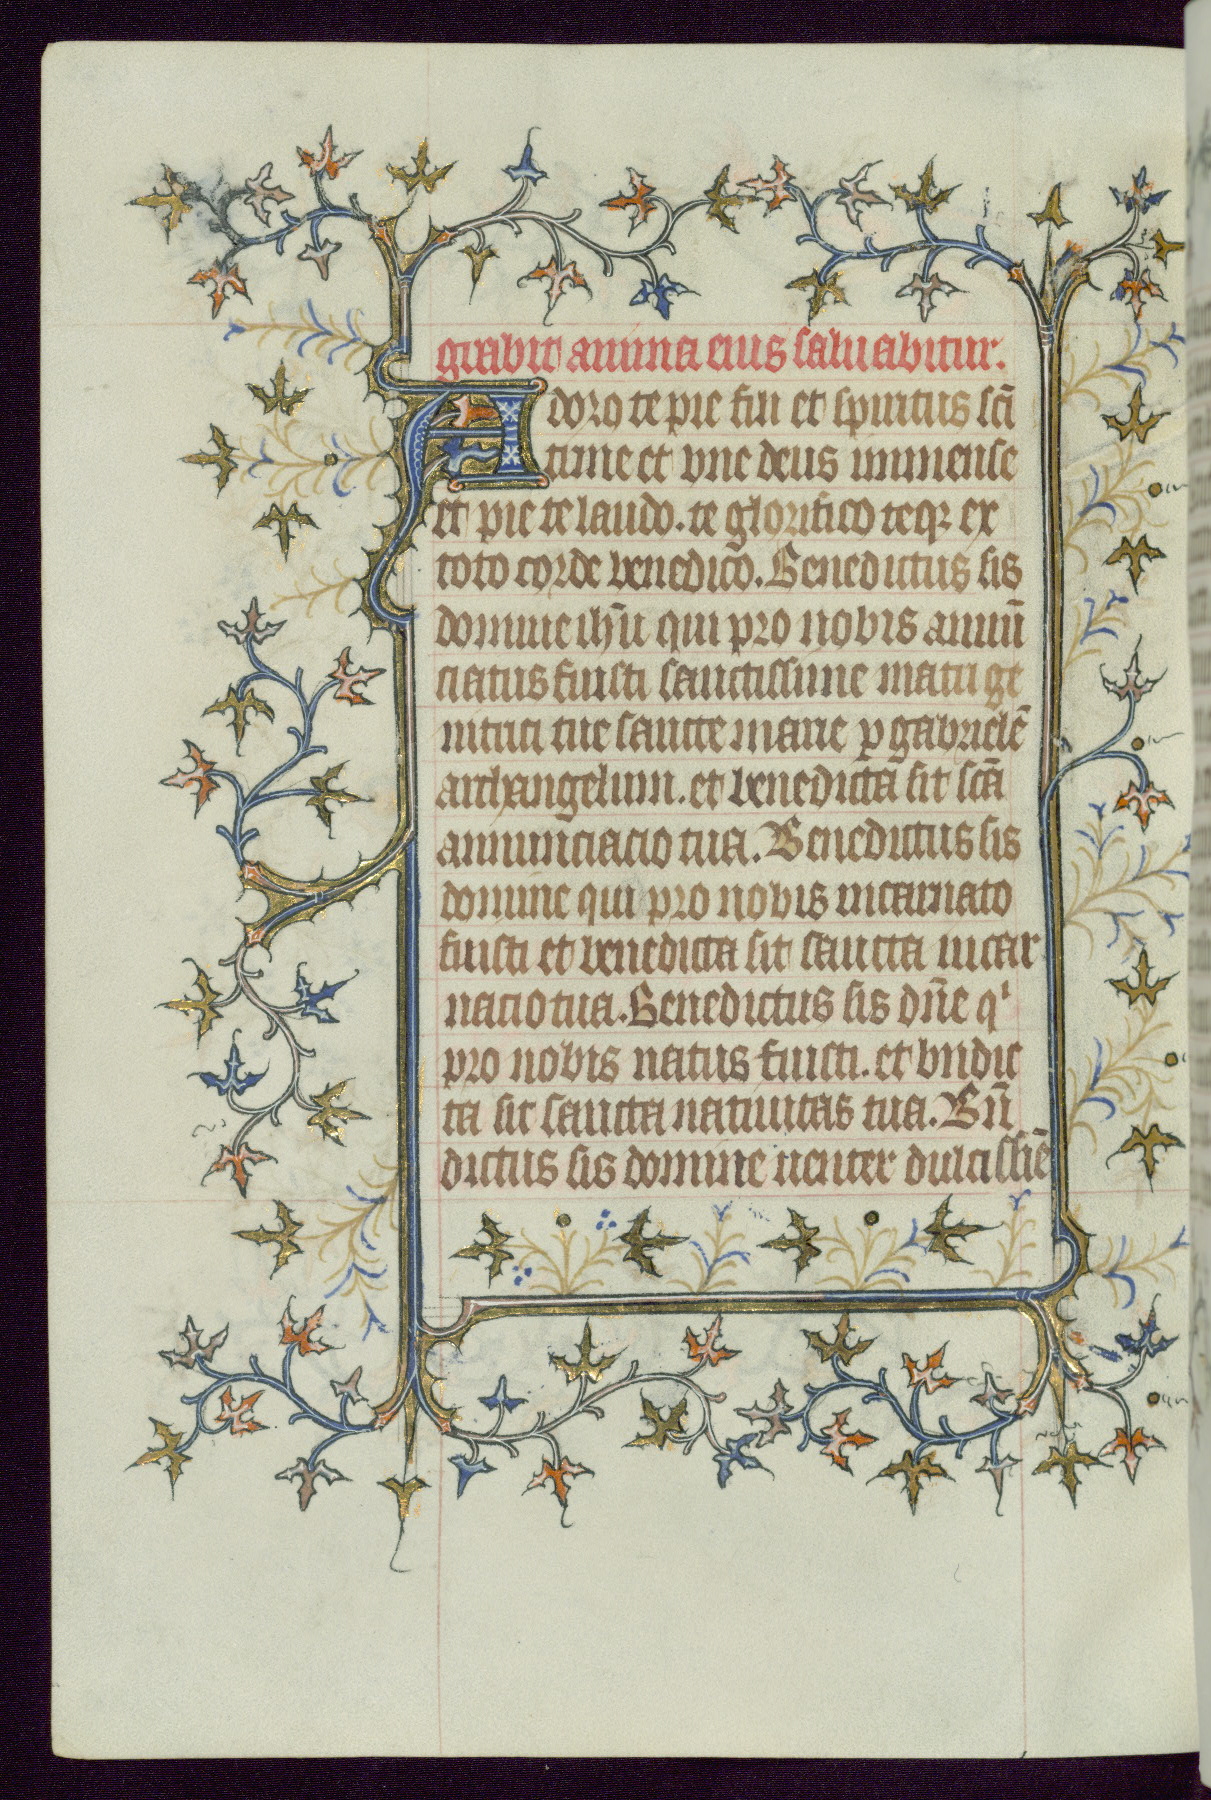 grabit anima eius saluabitur.
Adoro te pie fili et spiritus sc̄i
time et vne deus inmense
et pie te laudo. te glorifico teqꝫ ex
toto corde benedico. Benedictus sis
domine ih̄u qui pro nobis annū
ciatus fuisti sanctissime matri ge
nitrici tue sancte marie ꝑ gabrielē
archangelum. et benedicta sit sc̄a
annunciacio tua. Benedictus sis
domine qui pro nobis incarnato
fuisti et benedicta sit sancta incar
nacio tua. Benedictus sis dn̄e qⁱ
pro nobis natus fuisti. et bndic
ta sit sancta natiuitas tua. Bn̄
dictus sis domine uenter dulcissīē